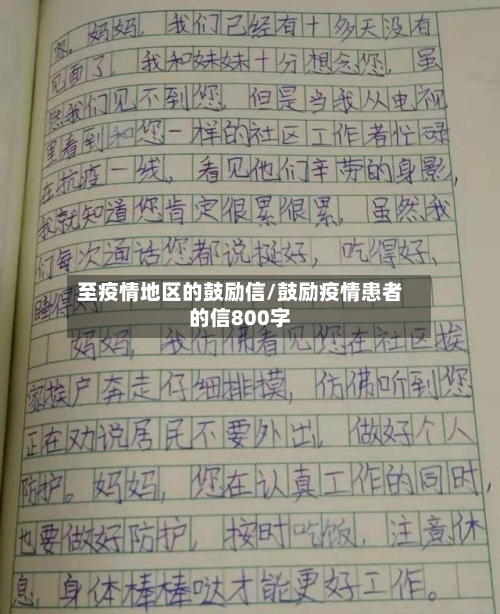 妈妈，我们已经有十多天没有
见面了，我和妹妹十分想念您，虽
然我们见不到您，但是当我从电视
里看到和您一样的社区工作者忙碌
在抗疫一线，看见他们辛劳的身影，
我就知道您肯定很累很累，虽然我
们每次通话您都说挺好，吃得好、
睡得
至疫情地区的鼓励信/鼓励疫情患者
的信800字
妈妈，我仿佛看见您在社区挨
家挨户奔走仔细排摸，仿佛听到您
正在劝说居民不要外出，做好个人
防护。妈妈，您在认真工作的同时，
也要做好防护，按时吃饭，注意休
息，身体棒棒哒才能更好工作。